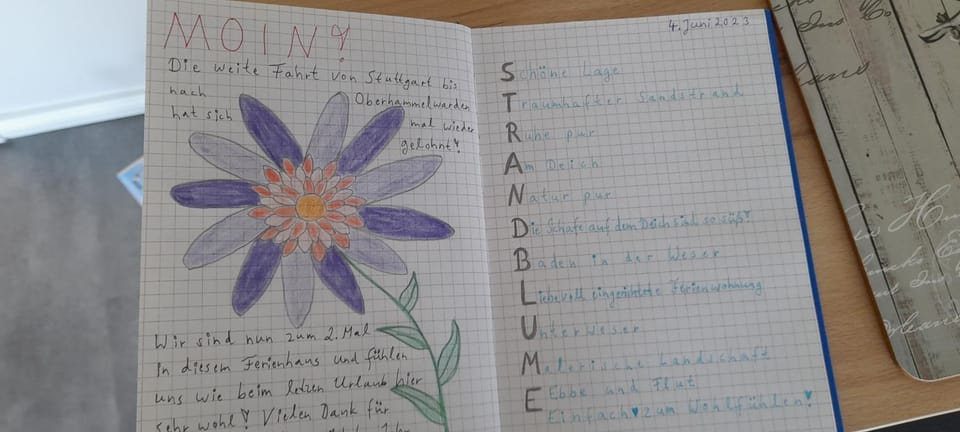 MOIN!
Die weite Fahrt von Stuttgart bis
nach Oberhammelwarden
hat sich mal wieder
gelohnt!
Wir sind nun zum 2. Mal
in diesem Ferienhaus und fühlen
uns wie beim letzen Urlaub hier
sehr wohl! Vielen Dank für
4. Juni 2023
Schöne Lage
Traumhafter Sandstrand
Ruhe pur
Am Deich
Natur pur
Die Schafe auf dem Deich sind so süß!
Baden in der Weser
Liebevoll eingerichtete Ferienwohnung
Unterweser
Malerische Landschaft
Ebbe und Flut
Einfach ♥ zum Wohlfühlen!